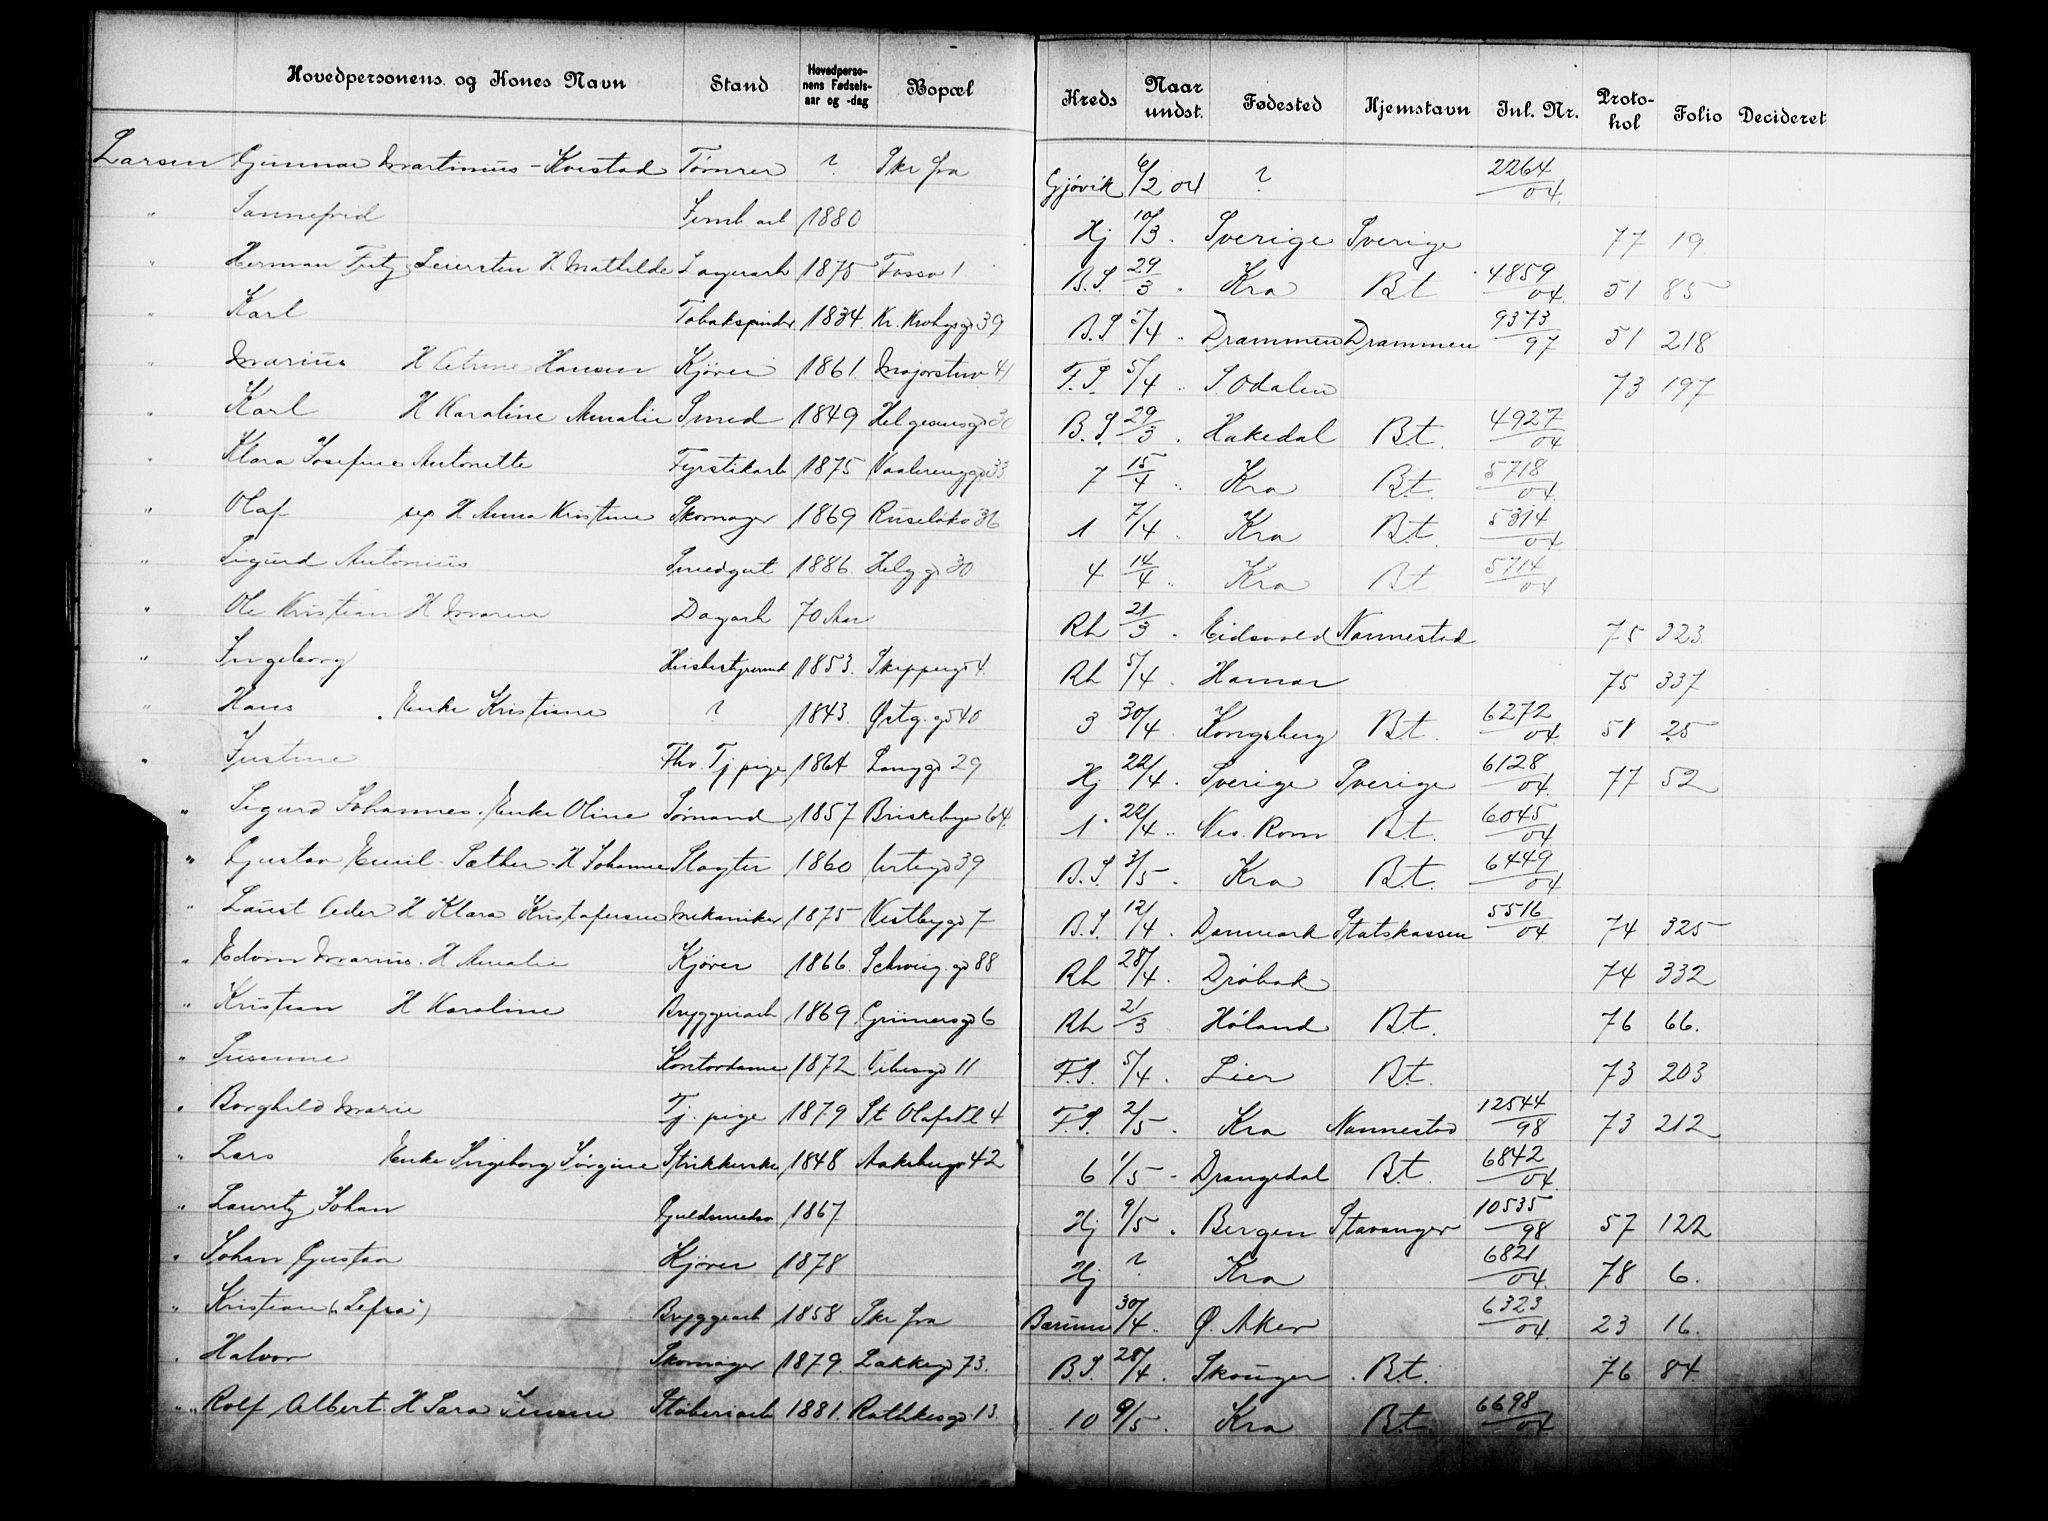 Hovedpersonens og Kones Navn | Stand | Hovedpersonens Fødselsaar og -dag | Bopæl | Kreds | Naar undst. | Fødested | Hjemstavn | Jnl. Nr. | Protokol | Folio | Decideret
Larsen Gunnar Martinius - Kvestad | Tømrer | ? | Skr fra | Gjøvik | 6/2 04 | ? | 2264/04.
" Sannefrid | 1880 | Hj | 10/3 . | Sverige | Sverige | 77 | 19
" Herman Fritz H Mathilde | Lagerarb | 1875 | Fossv 1 | B.S. | 29/3 . | Kra | Bt | 4859/04. | 51 | 85
" Karl | Tobakspinder | 1834 | Kr. Krohgsgd 39 | B.S. | 5/4 . | Drammen | Drammen | 9373/97 | 51 | 218
" Marius H Petrine Hansen | Kjører | 1861. | Majorstuv 41 | F.S. | 5/4 . | S. Odalen | 73 | 197
" Karl H Karoline Amalie | Smed | 1849 | Helgesensgd 30 | B.S. | 29/3 . | Hakedal | B.t. | 4927/04
" Klara Josefine Antonette | Fyrstikarb | 1875 | Vaalerenggd 33 | 7 | 15/4 . | Kra | B.t. | 5718/04.
" Olaf sep H Anna Kristine | Skomager | 1869 | Ruseløkv 36 | 1 | 7/4 . | Kra | B.t. | 5314/04
" Sigurd Antonius | Smedgut | 1886. | Helg gd 30 | 4 | 14/4 . | Kra | Bt | 5714/04
" Ole Kristian H Maren | Dagarb | 70 Aar | Rh | 21/3 . | Eidsvold | Nannestad | 75 | 323.
" Ingeborg | Husbestyrerinde | 1853. | Skippergd 4. | Rh | 5/4 . | Hamar | 75 | 337
" Hans . Enke Kristiane | ? | 1843. | Østg. gd 40 | 3 | 30/4 . | Kongsberg | B.t. | 6272/04. | 51 | 25
" Justine | Fhv. Tj pige | 1864 | Langgd 29 | Hj | 22/4 . | Sverige | Sverige | 6128/04. | 77 | 52
" Sigurd Johannes. Enke Oline | Sømand | 1857 | Briskebyv 64. | 1 | 22/4 .. | Nes. Rom | B.t. | 6045/04
" Gustav Emil - Sæther - H Johanne | Slagter | 1860 | Urtegd 39 | B.S. | 3/5 . | Kra | B.t. | 6449/04
" Laust Peder H Klara Kristofersen | Mekaniker | 1875 | Vestbygd 7 | B.S. | 12/4 . | Danmark | Statskassen | 5516/04 | 74 | 325
" Edvin Marius. H Amalie | Kjører | 1866. | Schweig. gd 88 | Rh | 28/4 . | Drøbak | 74 | 332
" Kristian H Karoline | Bryggeriarb | 1869. | Grünersgd 6 | Rh | 2/3 | Høland | B.t. | 76 | 66.
" Susanne | Kontordame | 1872 | Vibesgd 11 | F.S. | 5/4 . | Lier | B.t. | 73 | 203
" Borghild Marie | Tj. pige | 1879 | St Olafs Pl 4 | F.S. | 2/5 . | Kra | Nannestad | 12544/98 | 73 | 212
" Lars Enke Ingeborg Jørgine | Strikkerske | 1848 | Aakebergv 42 | 6 | 1/5 - | Drangedal | B.t. | 6842/04.
" Lauritz Johan | Guldsmedsv | 1867 | Hj | 9/5 . | Bergen | Stavanger | 10535/98 | 57 | 122
" Johan Gustav | Kjører | 1878 | Hj | ? | Kra | 6821/04. | 78 | 6.
" Kristian | Bryggearb | 1858 | Skr fra | Bærum | 30/4 . | Ø. Aker | 6323/04. | 23 | 16.
" Halvor | Skomager | 1879. | Lakkegd 73. | B.S. | 28/4 . | Skouger | . B.t. | 76 | 84.
" Rolf Albert. H Sara | Støberiarb | 1881. | Rathkesgd 13. | 10 | 9/5 . | Kra | B.t. | 6698/04